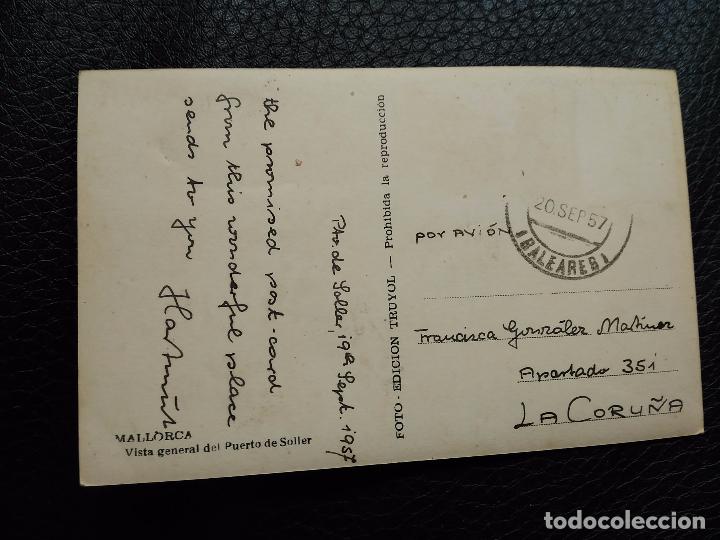 Pto. de Soller, 19th Sept. 1957
the promised post-card
from this wonderful place
sends to you Hartmut
MALLORCA
Vista general del Puerto de Soller
FOTO - EDICION TRUYOL — Prohibida la reproducción
20.SEP.57
(BALEARES)
POR AVIÓN
Francisca González Martínez
Apartado 351
LA CORUÑA
todocoleccion